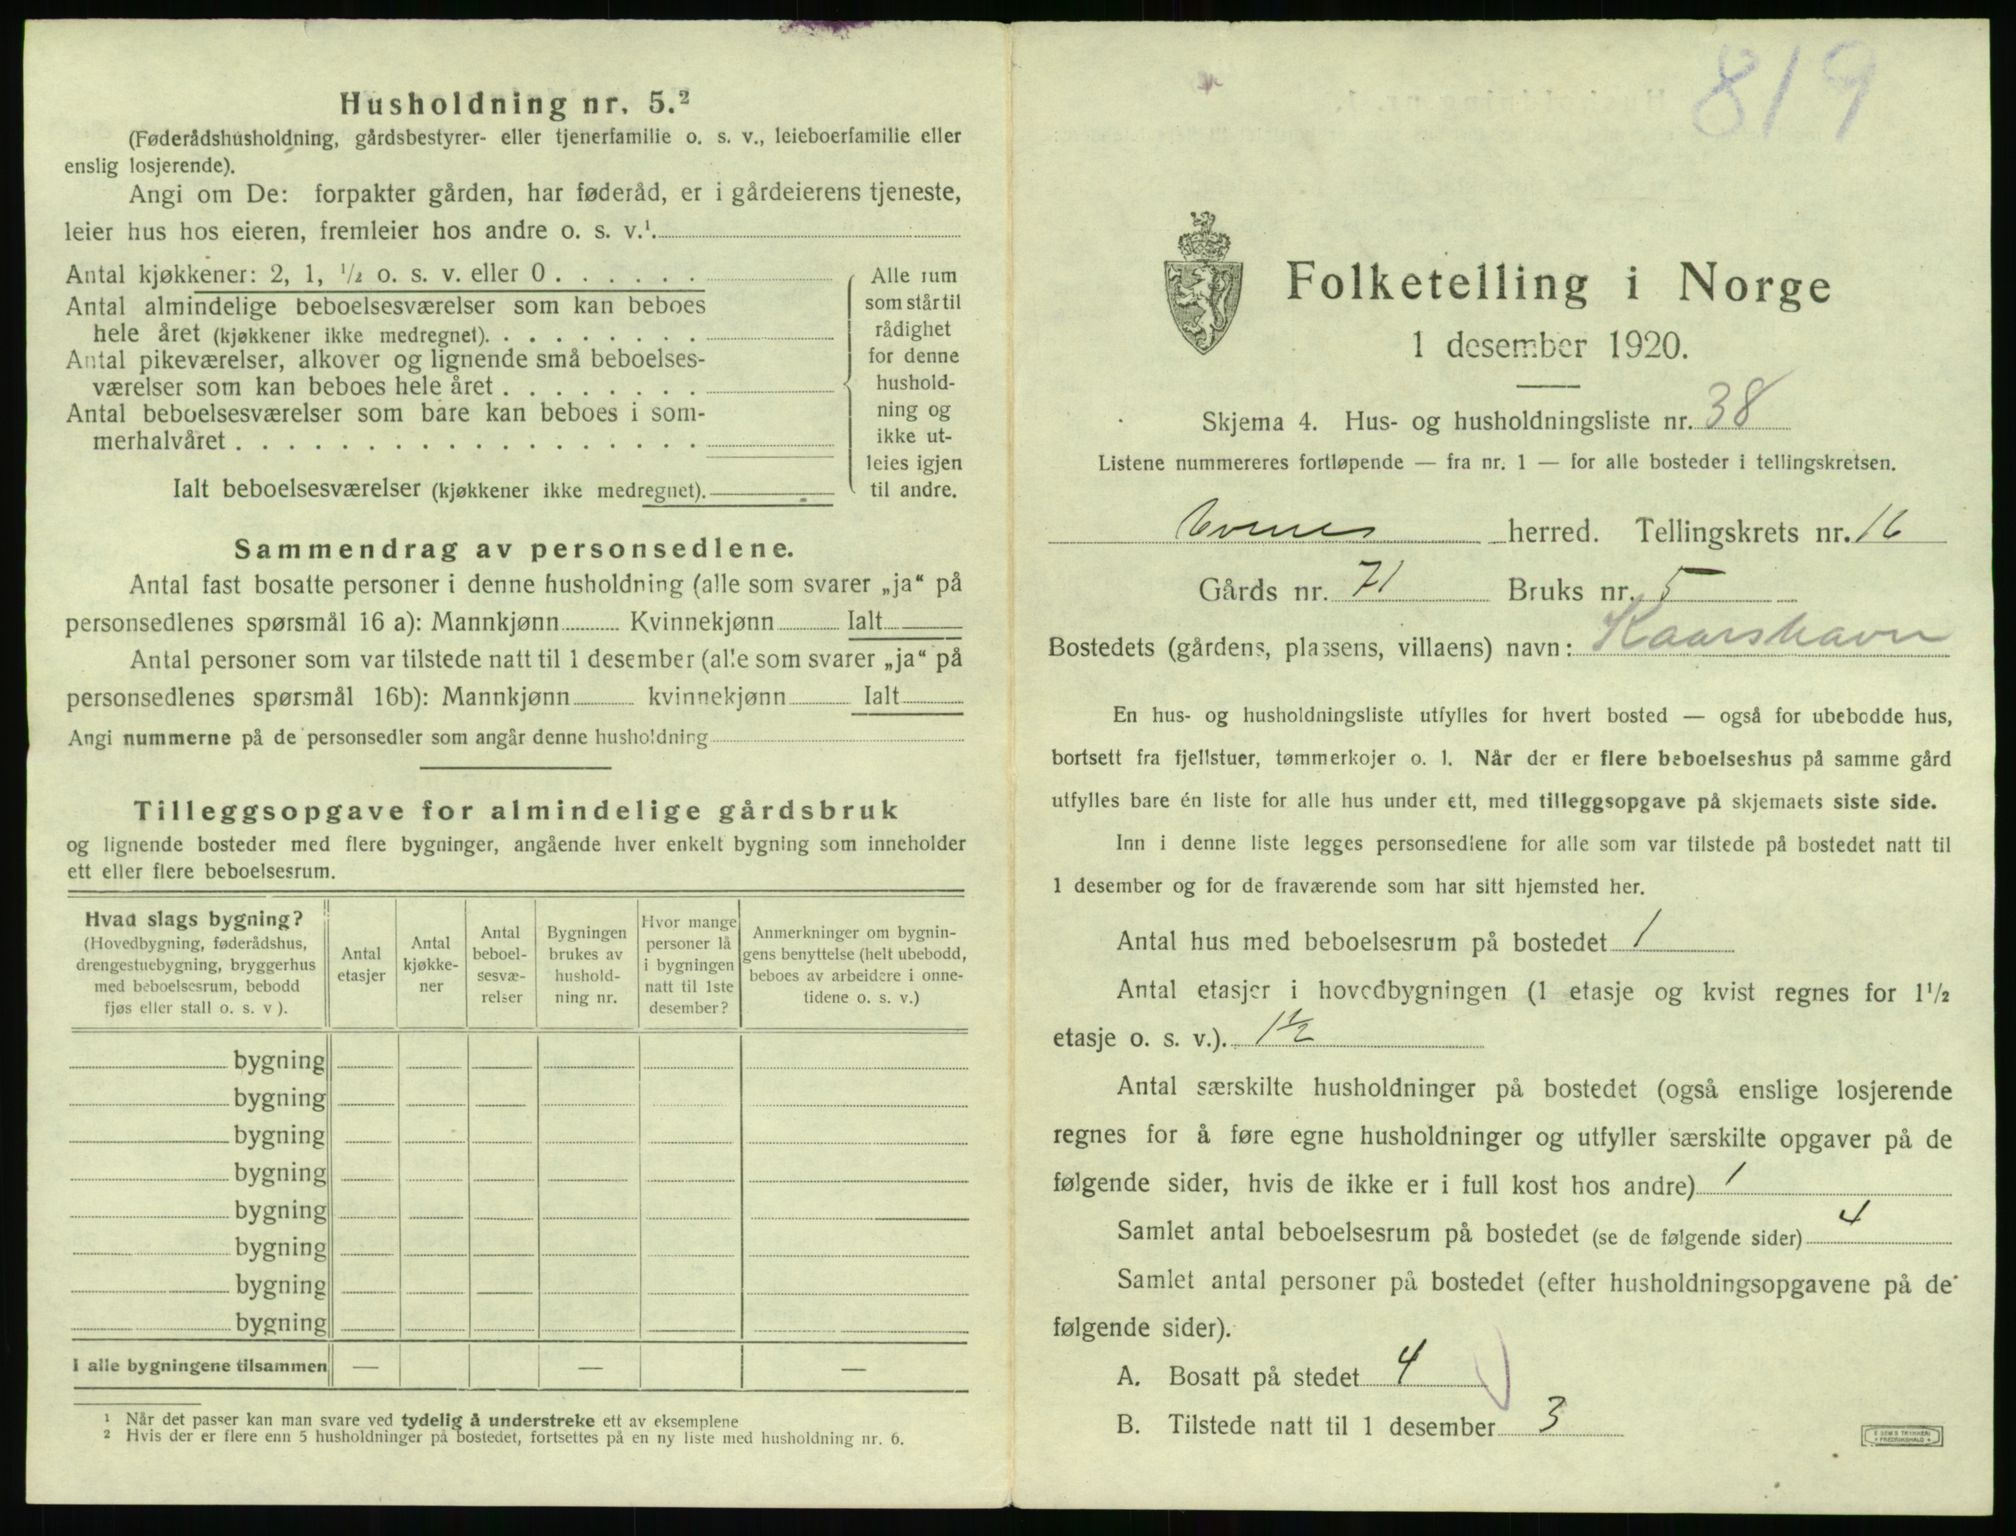 Husholdning nr. 5.²
(Føderådshusholdning, gårdsbestyrer- eller tjenerfamilie o. s. v., leieboerfamilie eller
enslig losjerende).
Angi om De: forpakter gården, har føderåd, er i gårdeierens tjeneste,
leier hus hos eieren, fremleier hos andre o. s. v.¹
Antal kjøkkener: 2, 1, ½ o. s. v. eller 0 . . . . . .
Antal almindelige beboelsesværelser som kan beboes
hele året (kjøkkener ikke medregnet). . . . . . . . .
Antal pikeværelser, alkover og lignende små beboelses-
værelser som kan beboes hele året . . . . . . . .
Antal beboelsesværelser som bare kan beboes i som-
merhalvåret . . . . . . . . . . . . . . . . . .
Ialt beboelsesværelser (kjøkkener ikke medregnet).
Alle rum
som står til
rådighet
for denne
hushold-
ning og
ikke ut-
leies igjen
til andre.
Sammendrag av personsedlene.
Antal fast bosatte personer i denne husholdning (alle som svarer „ja“ på
personsedlenes spørsmål 16 a): Mannkjønn Kvinnekjønn Ialt
Antal personer som var tilstede natt til 1 desember (alle som svarer „ja“ på
personsedlenes spørsmål 16b): Mannkjønn kvinnekjønn Ialt
Angi nummerne på de personsedler som angår denne husholdning
Tilleggsopgave for almindelige gårdsbruk
og lignende bosteder med flere bygninger, angående hver enkelt bygning som inneholder
ett eller flere beboelsesrum.
Hvad slags bygning?
(Hovedbygning, føderådshus,
drengestuebygning, bryggerhus
med beboelsesrum, bebodd
fjøs eller stall o. s. v ).
Antal
etasjer
Antal
kjøkke-
ner
Antal
beboel-
sesvæ-
relser
Bygningen
brukes av
hushold-
ning nr.
Hvor mange
personer lå
i bygningen
natt til 1ste
desember?
Anmerkninger om bygnin-
gens benyttelse (helt ubebodd,
beboes av arbeidere i onne-
tidene o. s. v.)
bygning
bygning
bygning
bygning
bygning
bygning
bygning
bygning
I alle bygningene tilsammen — — —
¹ Når det passer kan man svare ved tydelig å understreke ett av eksemplene
² Hvis der er flere enn 5 husholdninger på bostedet, fortsettes på en ny liste med husholdning nr. 6.
819
Folketelling i Norge
1 desember 1920.
Skjema 4. Hus- og husholdningsliste nr. 38
Listene nummereres fortløpende — fra nr. 1 — for alle bosteder i tellingskretsen.
Evenes herred. Tellingskrets nr. 16
Gårds nr. 71 Bruks nr. 5
Bostedets (gårdens, plassens, villaens) navn: Kaarshavn
En hus- og husholdningsliste utfylles for hvert bosted — også for ubebodde hus,
bortsett fra fjellstuer, tømmerkojer o. l. Når der er flere beboelseshus på samme gård
utfylles bare én liste for alle hus under ett, med tilleggsopgave på skjemaets siste side.
Inn i denne liste legges personsedlene for alle som var tilstede på bostedet natt til
1 desember og for de fraværende som har sitt hjemsted her.
Antal hus med beboelsesrum på bostedet 1
Antal etasjer i hovedbygningen (1 etasje og kvist regnes for 1½
etasje o. s. v.). 1½
Antal særskilte husholdninger på bostedet (også enslige losjerende
regnes for å føre egne husholdninger og utfyller særskilte opgaver på de
følgende sider, hvis de ikke er i full kost hos andre) 1
Samlet antal beboelsesrum på bostedet (se de følgende sider) 4
Samlet antal personer på bostedet (efter husholdningsopgavene på de
følgende sider).
A. Bosatt på stedet 4
B. Tilstede natt til 1 desember 3